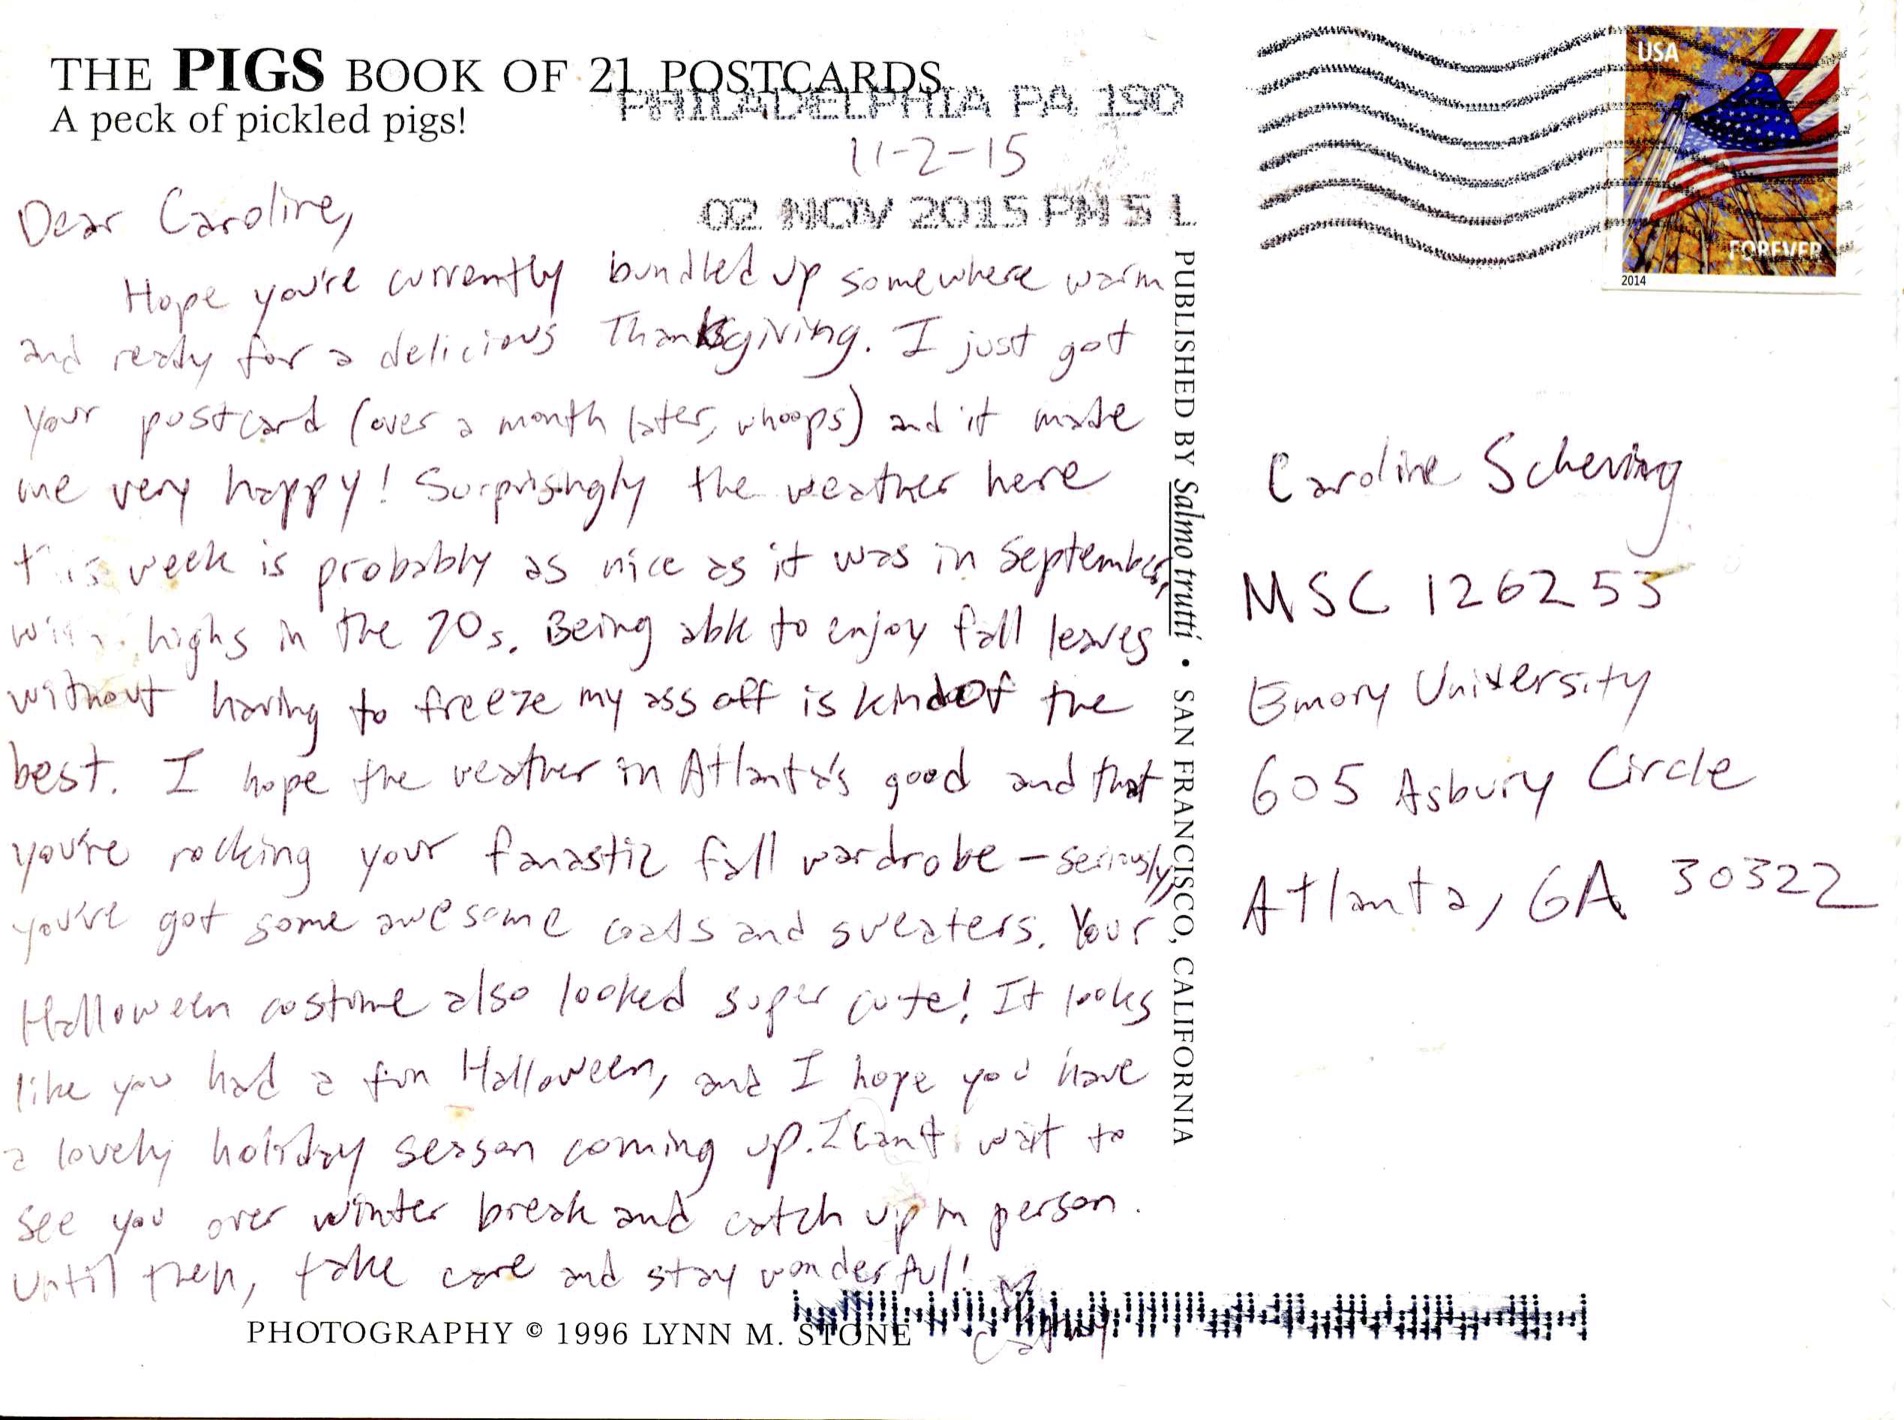 THE PIGS BOOK OF 21 POSTCARDS
A peck of pickled pigs!
PHILADELPHIA PA 190
11-2-15
02 NOV 2015 PM 5 L
USA
FOREVER
2014
Dear Caroline,
Hope you're currently bundled up somewhere warm
and ready for a delicious Thanksgiving. I just got
your postcard (over a month later, whoops) and it made
me very happy! Surprisingly the weather here
this week is probably as nice as it was in September,
with highs in the 70s. Being able to enjoy fall leaves
without having to freeze my ass off is kind of the
best. I hope the weather in Atlanta's good and that
you're rocking your fanastic fall wardrobe - seriously,
you've got some awesome coats and sweaters. Your
Halloween costume also looked super cute! It looks
like you had a fun Halloween, and I hope you have
a lovely holiday season coming up. I can't wait to
see you over winter break and catch up in person.
Until then, take care and stay wonderful!
Cathy
PUBLISHED BY Salmo trutti • SAN FRANCISCO, CALIFORNIA
Caroline Schering
MSC 126253
Emory University
605 Asbury Circle
Atlanta, GA 30322
PHOTOGRAPHY © 1996 LYNN M. STONE